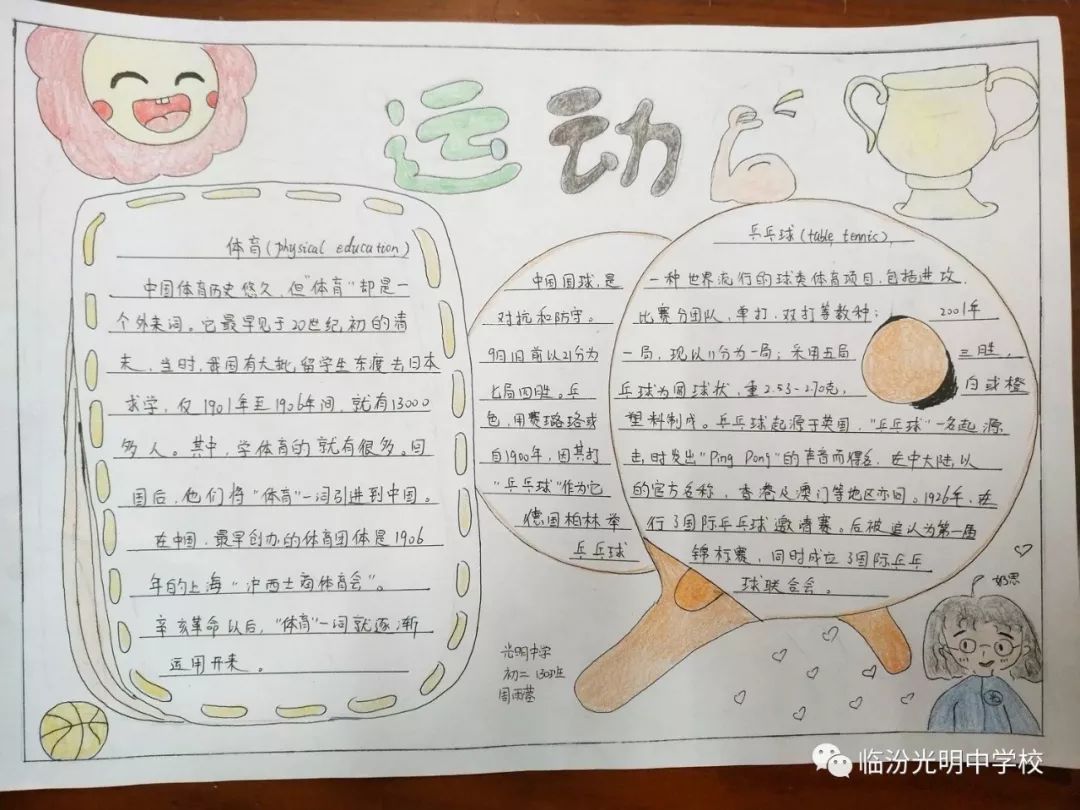 运动
体育(physical education)
中国体育历史悠久,但"体育"却是一
个外来词。它最早见于20世纪初的清
末,当时,我国有大批留学生东渡去日本
求学,仅1901年至1906年间,就有13000
多人。其中,学体育的就有很多。回
国后,他们将"体育"一词引进到中国。
在中国,最早创办的体育团体是1906
年的上海"沪西士商体育会"。
辛亥革命以后,"体育"一词就逐渐
运用开来。
乒乓球(table tennis),
中国国球,是一种世界流行的球类体育项目,包括进攻、
对抗和防守。比赛分团队,单打,双打等数种;2001年
9月1日前以21分为一局,现以11分为一局;采用五局三胜,
七局四胜。乒乓球为圆球状,重2.53-2.70克,白或橙
色,用赛璐珞或塑料制成。乒乓球起源于英国,"乒乓球"一名起源
自1900年,因其打击时发出"Ping Pong"的声音而得名.在中大陆,以
"乒乓球"作为它的官方名称,香港及澳门等地区亦同。1926年,在
德国柏林举行了国际乒乓球邀请赛。后被追认为第一届
乒乓球锦标赛,同时成立了国际乒乓
球联合会。
光明中学
初二 130班
奶思
临汾光明中学校